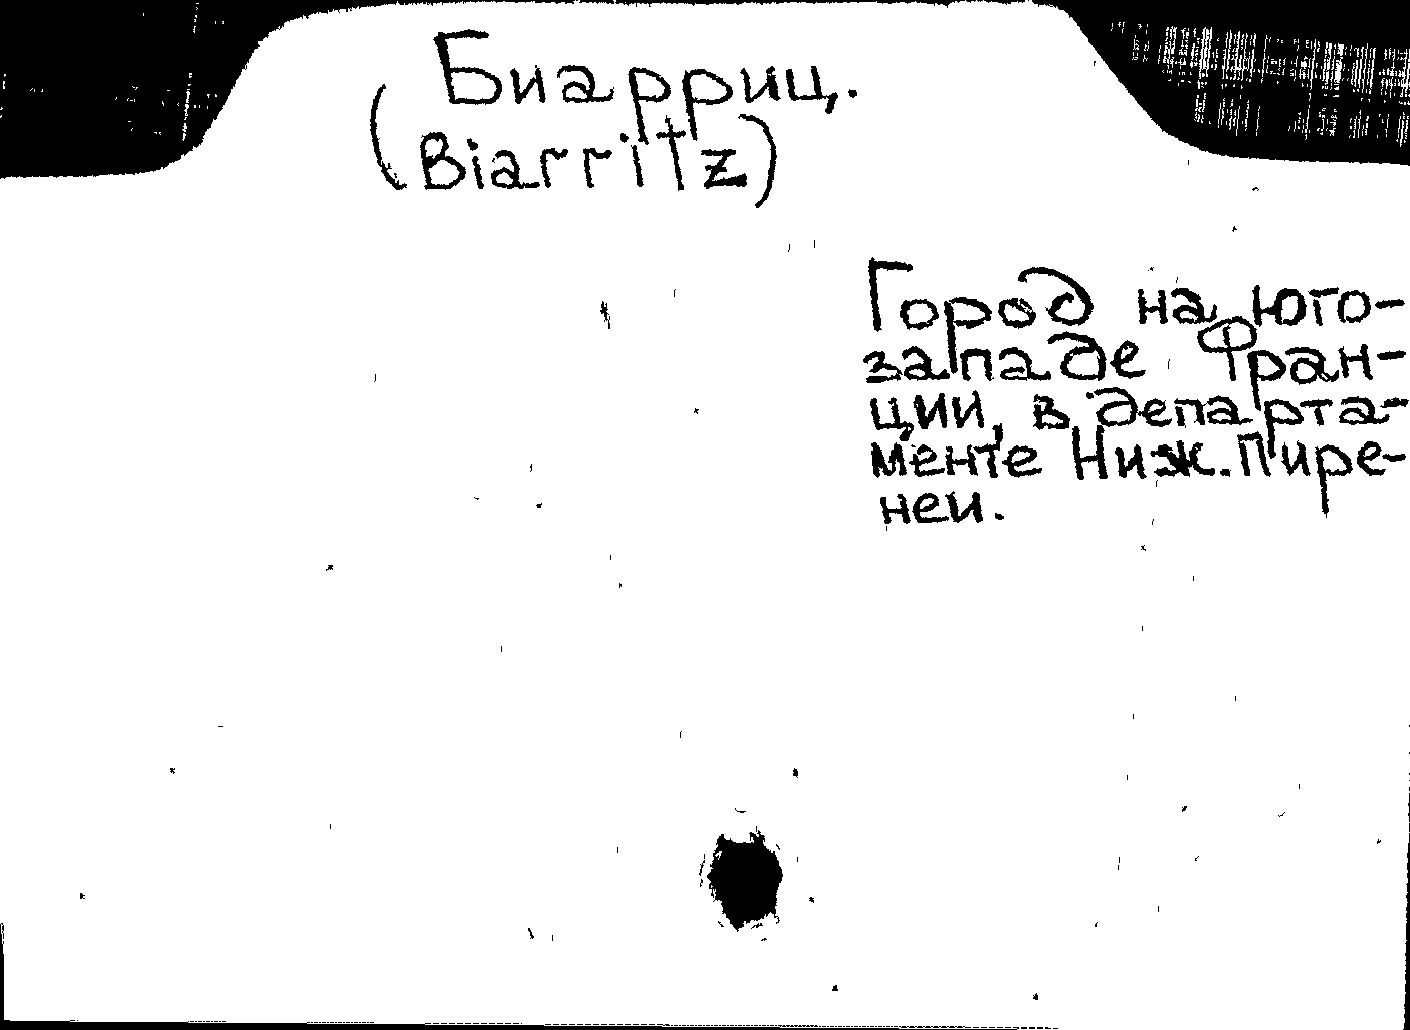 Биарриц.
(Biarritz)
Город на юго-
западе Фран-
ции, в департа-
менте Ниж. Пире-
неи.